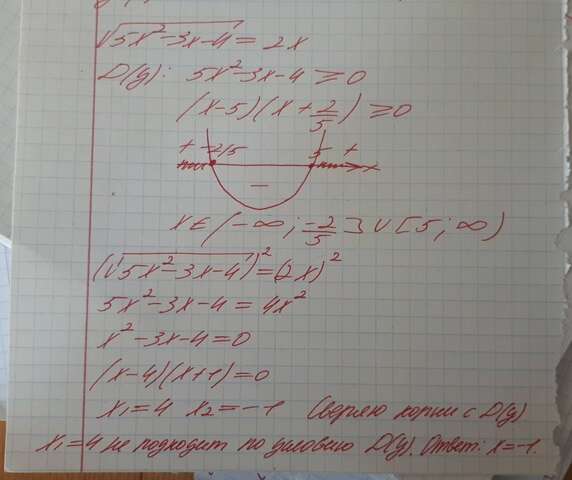 √5x²-3x-4 = 2x
D(y): 5x²-3x-4 ⩾ 0
(x-5)(x+2/5) ⩾ 0
+ -2/5 5 +
− x
x∈(-∞; -2/5]∪[5; ∞)
(√5x²-3x-4)² = (2x)²
5x²-3x-4 = 4x²
x²-3x-4=0
(x-4)(x+1)=0
x₁=4 x₂=-1 Сверяю корни с D(y)
x₁=4 не подходит по условию D(y). Ответ: x=-1.